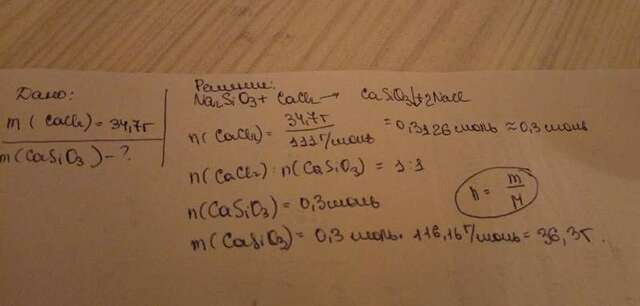 Дано:
m(CaCl₂) = 34,7г
m(CaSiO₃) - ?
Решение:
Na₂SiO₃ + CaCl₂ → CaSiO₃↓ + 2NaCl
n(CaCl₂) = 34,7г / 111г/моль = 0,3126 моль ≈ 0,3 моль
n(CaCl₂) : n(CaSiO₃) = 1:1
n(CaSiO₃) = 0,3 моль
n = m / M
m(CaSiO₃) = 0,3 моль · 116,16г/моль = 36,3г.